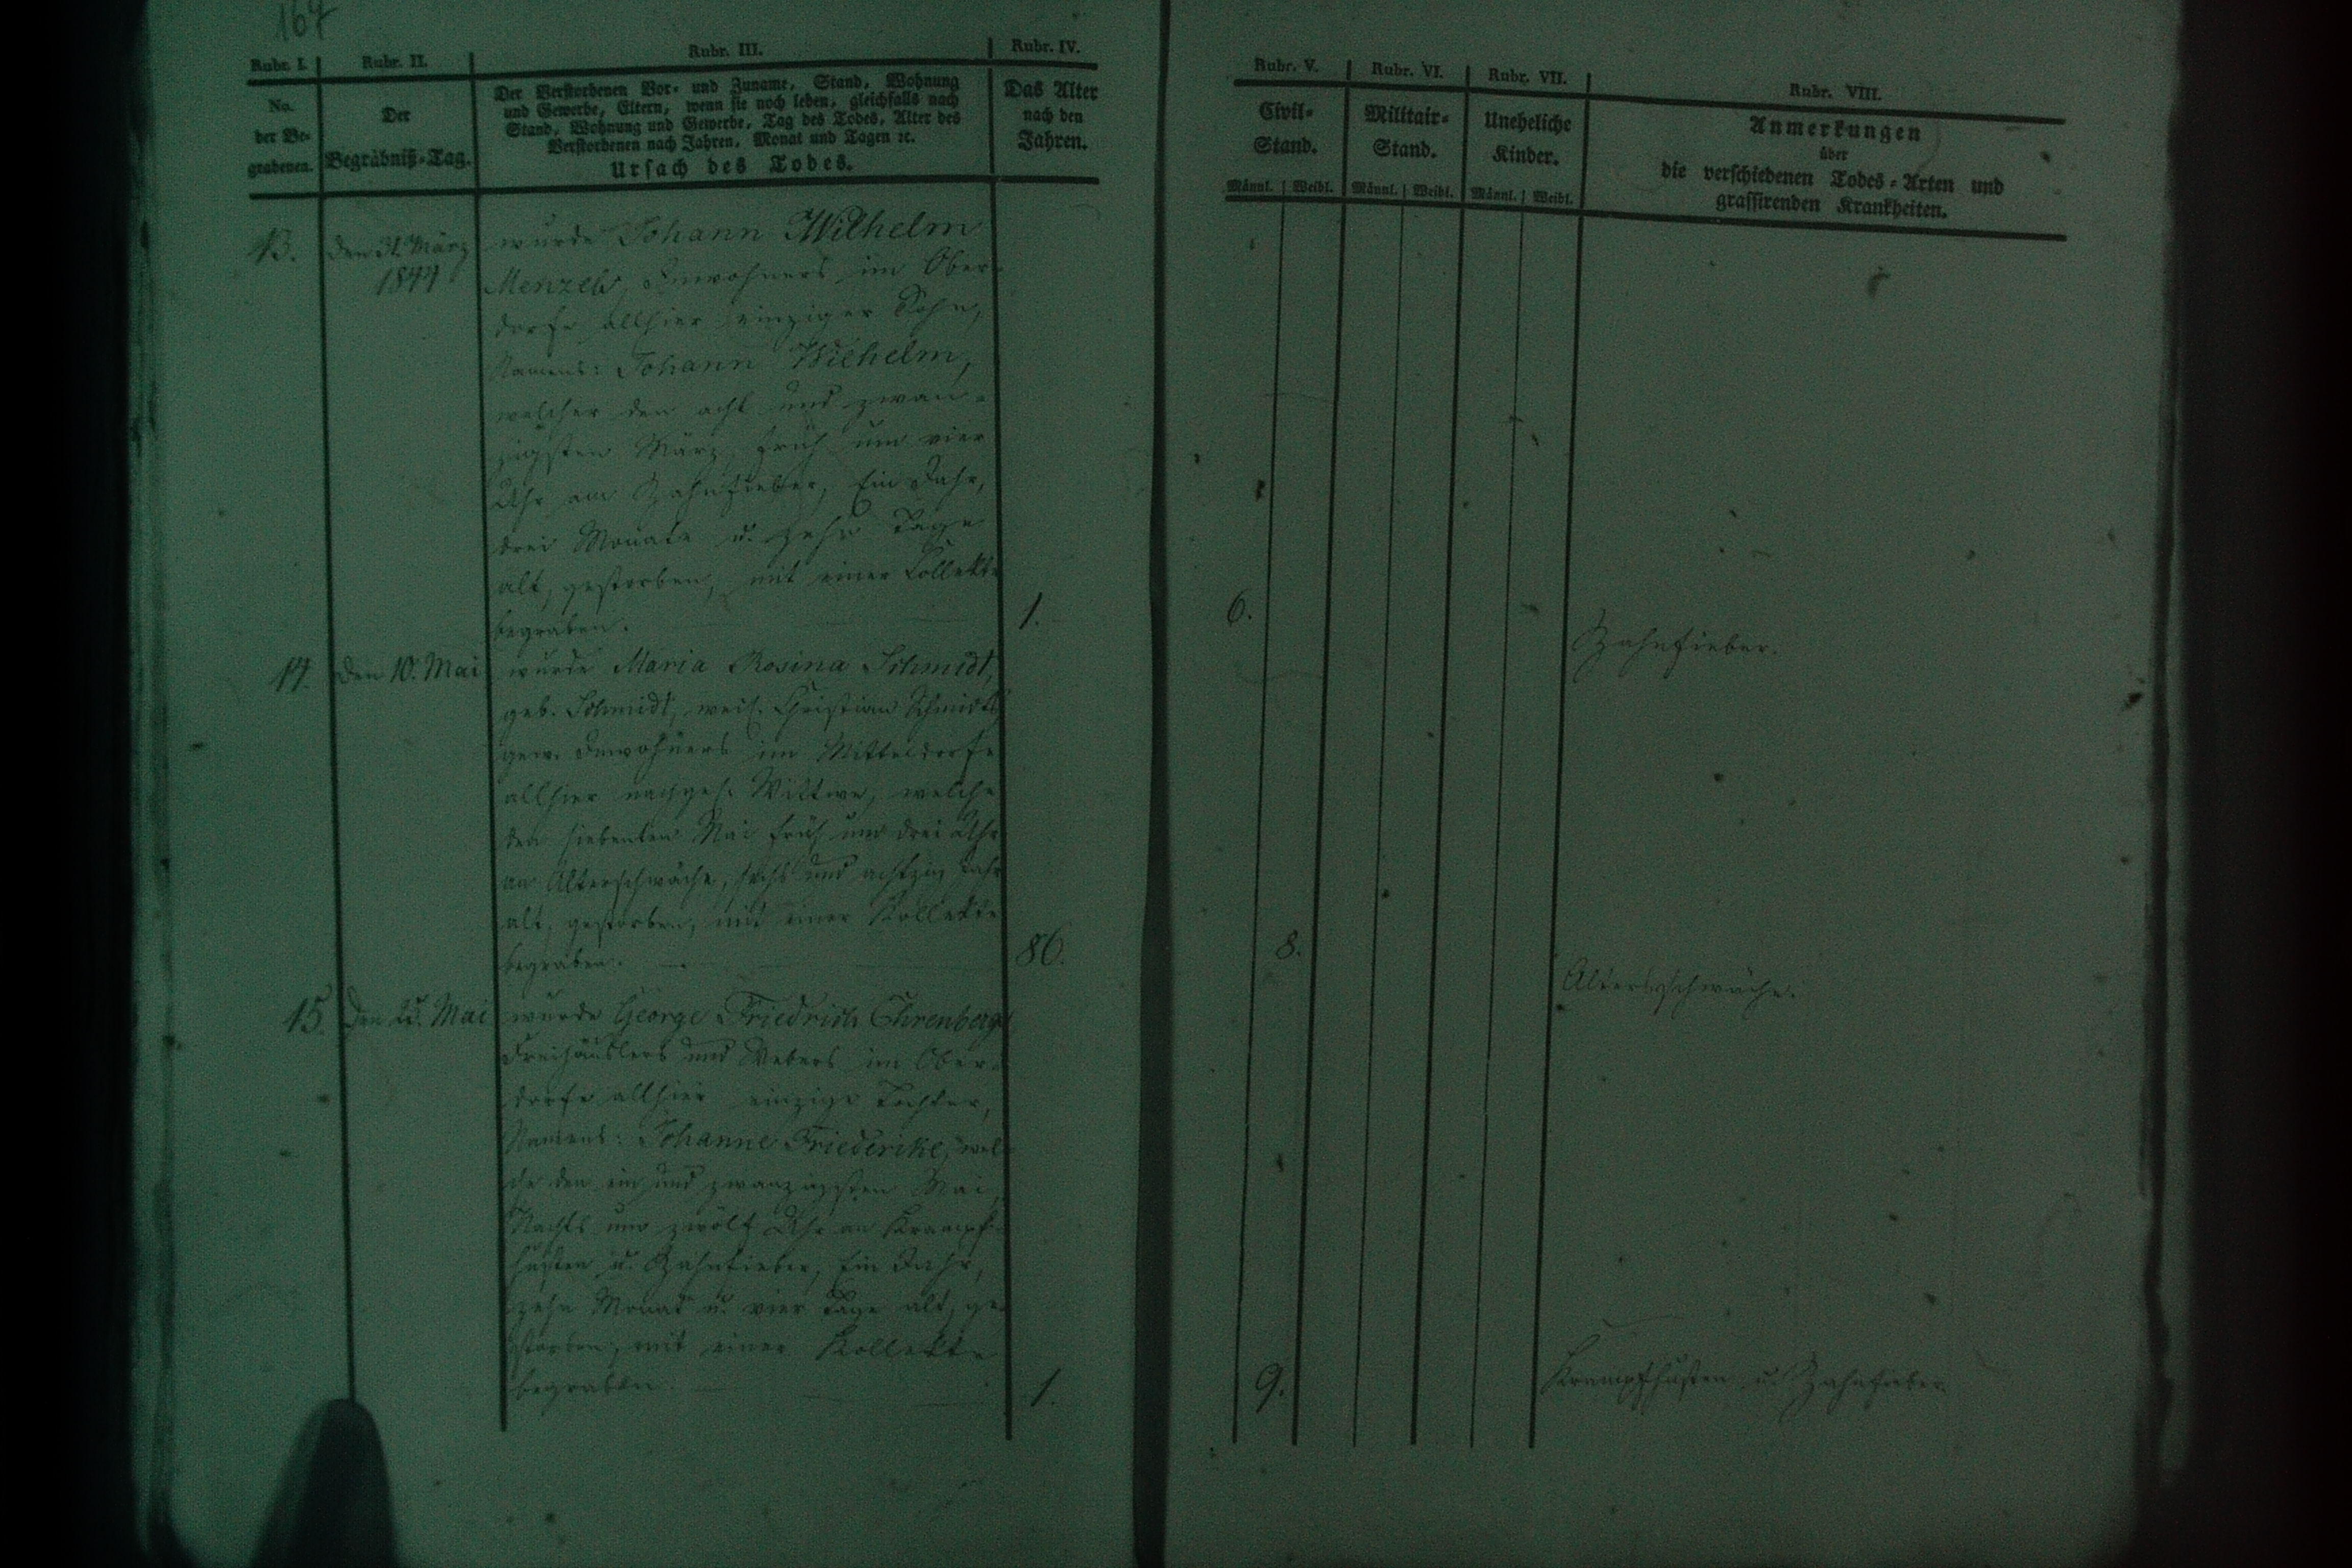 167
Rubr. I. Rubr. II. Rubr. III. Rubr. IV.
No. der Be- grabenen.
Der Begräbniß-Tag.
Der Verstorbenen Vor- und Zuname, Stand, Wohnung
und Gewerbe, Eltern, wenn sie noch leben, gleichfalls nach
Stand, Wohnung und Gewerbe, Tag des Todes, Alter des
Verstorbenen nach Jahren, Monat und Tagen ꝛc.
Ursach des Todes.
Das Alter
nach den
Jahren.
13. den 31. März
1844
wurde Johann Wilhelm
Menzels, Inwohners im Ober-
dorfe allhier einziger Sohn,
Namens: Johann Wilhelm,
welcher den acht und zwan-
zigsten März, früh um vier
Uhr am Zahnfieber, Ein Jahr,
drei Monate u. zehn Tage
alt, gestorben, mit einer Collekte
begraben. 1.
14. den 10. Mai wurde Maria Rosina Schmidt,
geb. Schmidt, weil. Christian Schmidts,
gew. Inwohners im Mitteldorfe
allhier nachgel. Wittwe, welche
den siebenten Mai früh um drei Uhr
an Altersschwäche, sechs und achtzig Jahr
alt, gestorben, mit einer Kollekte
begraben. 86.
15. den 25. Mai wurde George Friedrich Ehrenbergs
Freihäuslers und Webers im Ober-
dorfe allhier einzige Tochter,
Namens: Johanne Friederike, wel-
che den ein und zwanzigsten Mai
Nachts um zwölf Uhr an Krampf-
husten u. Zahnfieber, Ein Jahr,
zehn Monat u. vier Tage alt, ge-
storben, mit einer Kollekte
begraben. 1.
Rubr. V. Rubr. VI. Rubr. VII. Rubr. VIII.
Civil-
Stand.
Militair-
Stand.
Uneheliche
Kinder.
Anmerkungen
über
die verschiedenen Todes-Arten und
grassirenden Krankheiten.
Männl. Weibl. Männl. Weibl. Männl. Weibl.
6. Zahnfieber.
8. Altersschwäche.
9. Krampfhusten u. Zahnfieber